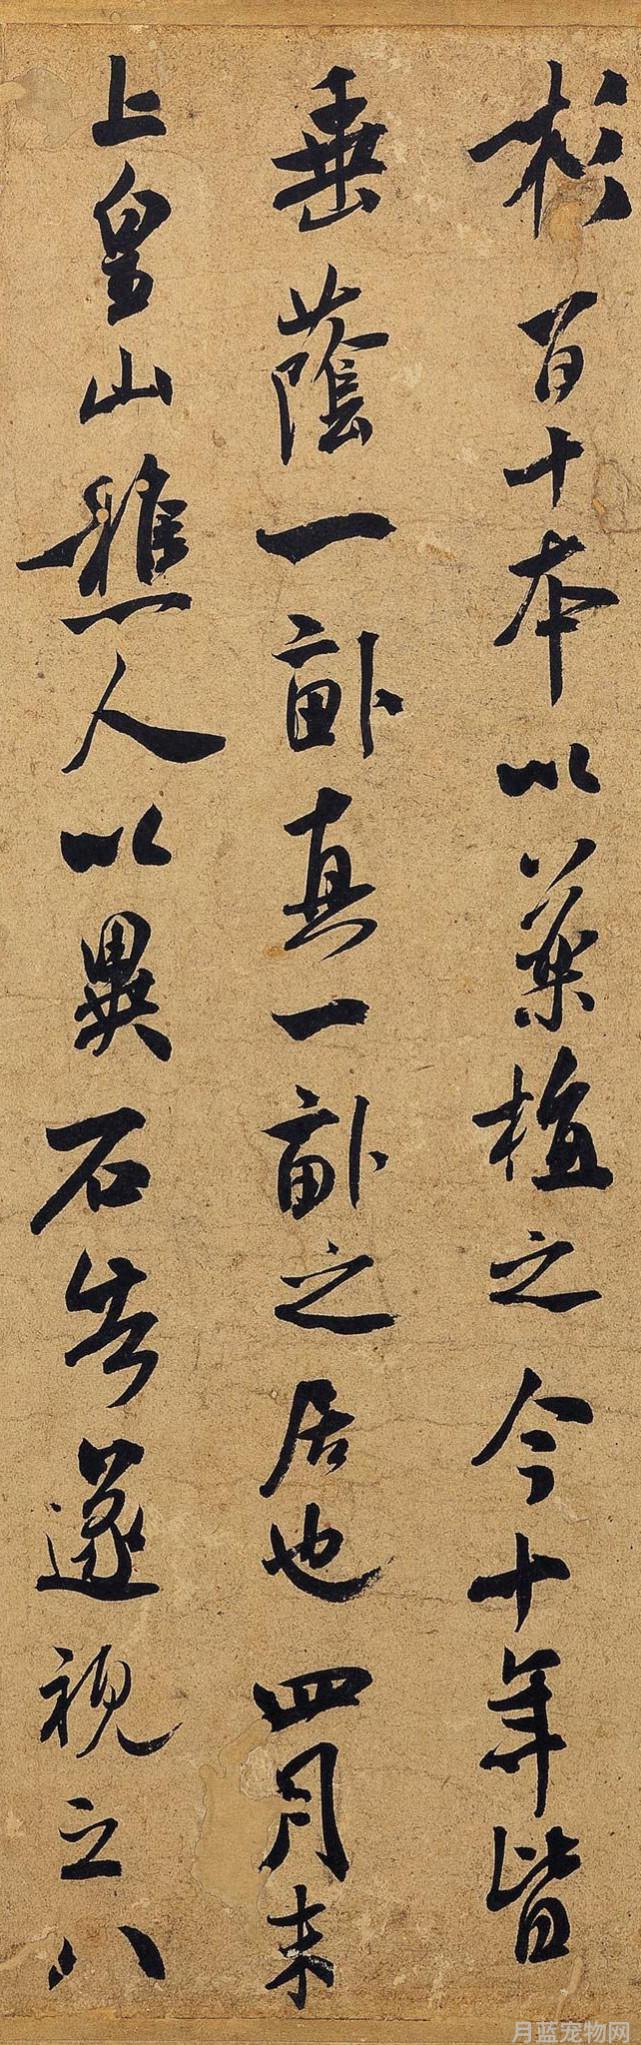 杉百十本以藥植之今十年皆
垂蔭一畝真一畝之居也四月末
上皇山樵人以異石告遂視之八
月蓝宠物网